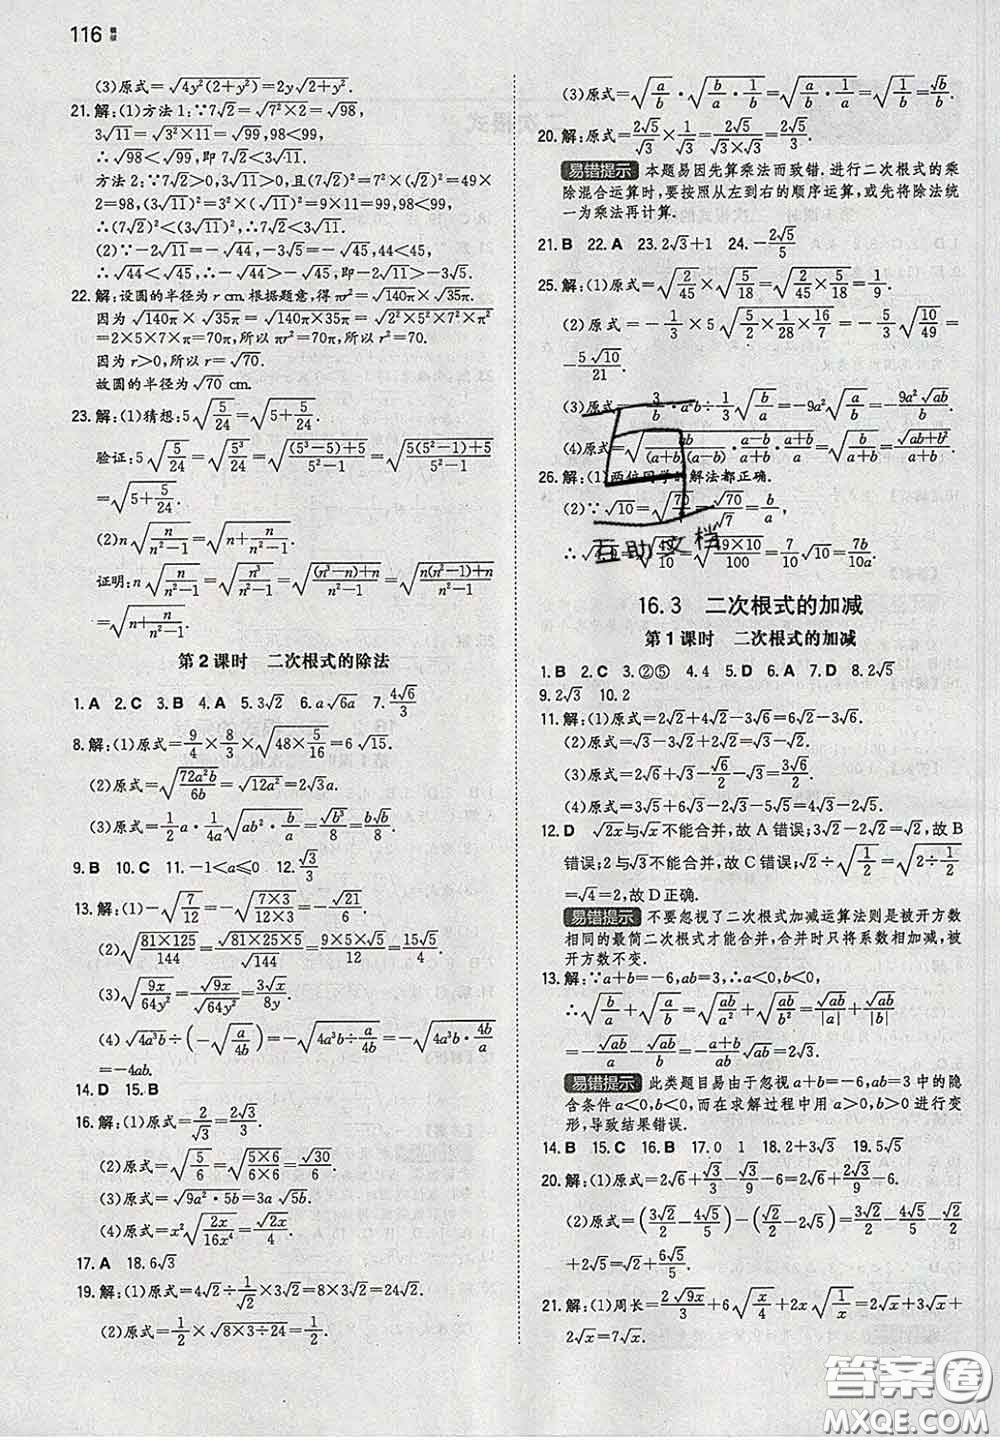 116
(3)原式=√(4y²(2+y²))=2y√(2+y²).
21.解:(1)方法1:∵7√2=√(7²×2)=√98,
3√11=√(3²×11)=√99,98<99,
∴√98<√99,即7√2<3√11.
方法2:∵7√2>0,3√11>0,且(7√2)²=7²×(√2)²=49
×2=98,(3√11)²=3²×(√11)²=9×11=99,98<99,
∴(7√2)²<(3√11)²,∴7√2<3√11.
(2)∵-2√11=-√44,-3√5=-√45,44<45,
∴√44<√45,∴-√44>-√45,即-2√11>-3√5.
22.解:设圆的半径为r cm.根据题意,得πr²=√(140π)×√(35π).
因为√(140π)×√(35π)=√(140π×35π)=√(2²×5²×7²×π²)
=2×5×7×π=70π,所以πr²=70π,所以r²=70.
因为r>0,所以r=√70.
故圆的半径为√70 cm.
23.解:(1)猜想:5√(5/24)=√(5+5/24).
验证:5√(5/24)=√(5³/24)=√(((5³-5)+5)/(5²-1))=√((5(5²-1)+5)/(5²-1))
=√(5+5/24).
(2)n√(n/(n²-1))=√(n+n/(n²-1)).
证明:n√(n/(n²-1))=√(n³/(n²-1))=√(((n³-n)+n)/(n²-1))=√((n(n²-1)+n)/(n²-1))
=√(n+n/(n²-1)).
第2课时 二次根式的除法
1.A 2.C 3.B 4.A 5.3√2 6.a√(6a) 7.4√6/3
8.解:(1)原式=9/4×8/3×√(48×5/16)=6√15.
(2)原式=√(72a²b/6b)=√(12a²)=2√3a.
(3)原式=1/2a·1/4a√(ab²·b/a)=√(b³)/8=b√b/8.
9.B 10.C 11.-1<a≤0 12.√3/3
13.解:(1)-√(7/12)=-√((7×3)/(12×3))=-√21/6.
(2)√((81×125)/144)=√(81×25×5)/√144=(9×5×√5)/12=15√5/4.
(3)√(9x/64y²)=√(9x)/√(64y²)=3√x/8y.
(4)√(4a³b)÷(-√(a/4b))=-√(4a³b÷a/4b)=-√(4a³b·4b/a)
=-4ab.
14.D 15.B
16.解:(1)原式=2/√3=2√3/3.
(2)原式=√(5/6)=√((5×6)/(6×6))=√30/6.
(3)原式=√(9a²·5b)=3a√(5b).
(4)原式=x²√(2x/16x⁴)=√(2x)/4.
17.A 18.6√3
19.解:(1)原式=4√2÷1/√2×3√2=8×3√2=24√2.
(2)原式=1/2×√(8×3÷24)=1/2×√1=1/2.
(3)原式=√(a/b)·√(b/a·1/b)=√(a/b·1/a)=√(1/b)=√b/b.
20.解:原式=2√5/√3×1/√3=2√5/(√3×√3)=2√5/3.
易错提示 本题易因先算乘法而致错.进行二次根式的乘
除混合运算时,要按照从左到右的顺序运算,或先将除法统
一为乘法再计算.
21.B 22.A 23.2√3+1 24.-2√5/5
25.解:(1)原式=√(2/45)×√(5/18)=√(2/45×5/18)=√(1/81)=1/9.
(2)原式=-1/3×5√(5/2×1/28×16/7)=-5/3√(10/49)=
-5√10/21.
(3)原式=-3/b·a²b÷1/3√(b/a)=-9a²√(a/b)=-9a²√(ab)/b.
(4)原式=√(ab/((a+b)(a-b))·(a-b)/(a+b)·(a+b)/(a+b))=√(ab/(a+b)²)
26.解:(1)两位同学 解法都正确.
(2)∵√10=√(70/7)=√70/√7=b/a,
10=√(49×10/100)=7/10√10=7b/10a.
互助文档
16.3 二次根式的加减
第1课时 二次根式的加减
1.B 2.C 3.②⑤ 4.4 5.D 6.A 7.D 8.2√5
9.2√3 10.2
11.解:(1)原式=2√2+4√2-3√6=6√2-3√6.
(2)原式=4√3-3√3+2√3=3√3.
(3)原式=2√6+√3-√6/2-√3=3√6/2.
(4)原式=16√3-2√3+8√3=22√3.
12.D √(2x)与√x不能合并,故A错误;3√2-2√2=√2,故B
错误;2与√3不能合并,故C错误;√2÷√(1/2)=√(2÷1/2)
=√4=2,故D正确.
易错提示 不要忽视了二次根式加减运算法则是被开方数
相同的最简二次根式才能合并,合并时只将系数相加减,被
开方数不变.
13.解:∵a+b=-6,ab=3,∴a<0,b<0,
∴√(b/a)+√(a/b)=√(ab/a²)+√(ab/b²)=√(ab)/|a|+√(ab)/|b|=
-√(ab)/a-√(ab)/b=-(a+b)/ab√(ab)=2√3.
易错提示 此类题目易由于忽视a+b=-6,ab=3中的隐
含条件a<0,b<0,而在求解过程中用a>0,b>0进行变
形,导致结果错误.
14.B 15.C 16.B 17.0 1 18.2+3√3 19.5√5
20.解:(1)原式=2√6+√3/3-√3/9-6=2√6+2√3/9-6.
(2)原式=(3√2/2-4√5/5)-(√2/2-2√5)=3√2/2-4√5/5-
√2/2+2√5=√2+6√5/5.
21.解:(1)周长=2√(9x)/3+6√(x/4)+2x√(1/x)=2√x+3√x+
2√x=7√x.
答案圈
MXQE.COM